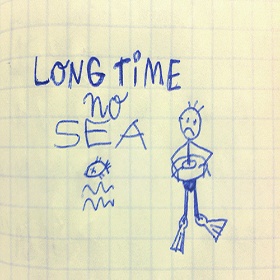 LONG TiME
no
SEA